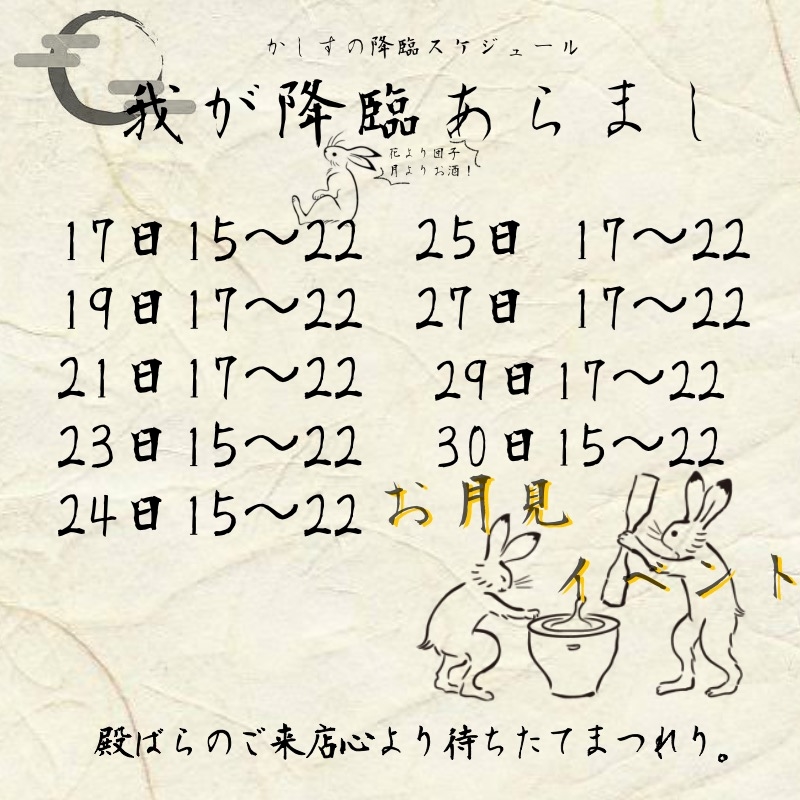 かしすの降臨スケジュール
我が降臨あらまし
花より団子
月よりお酒！
17日 15〜22
19日 17〜22
21日 17〜22
23日 15〜22
24日 15〜22
25日 17〜22
27日 17〜22
29日 17〜22
30日 15〜22
お月見
イベント
殿ばらのご来店心より待ちたてまつれり。